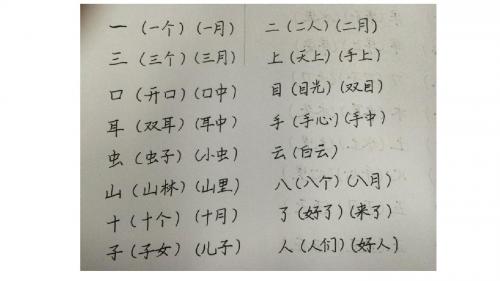 一（一个）（一月） 二（二人）（二月）
三（三个）（三月） 上（天上）（手上）
口（开口）（口中） 目（目光）（双目）
耳（双耳）（耳中） 手（手心）（手中）
虫（虫子）（小虫） 云（白云）
山（山林）（山里） 八（八个）（八月）
十（十个）（十月） 了（好了）（来了）
子（子女）（儿子） 人（人们）（好人）